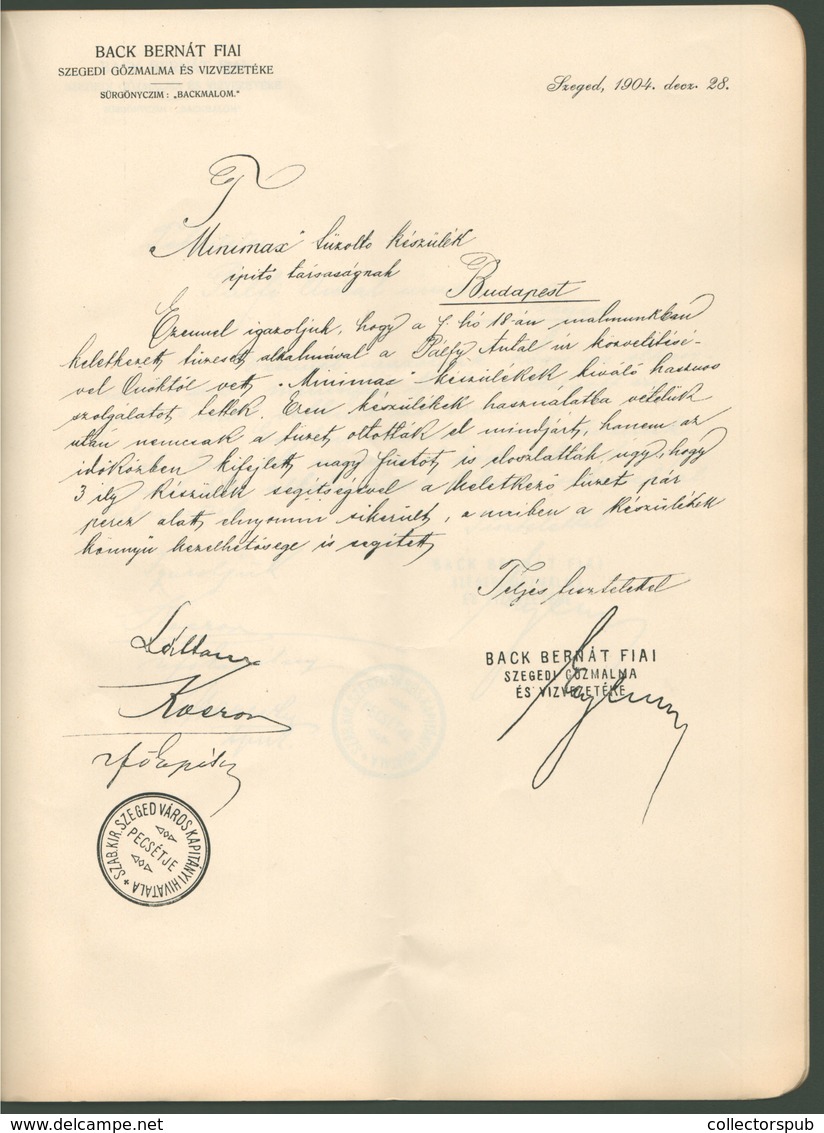 BACK BERNÁT FIAI
SZEGEDI GŐZMALMA ÉS VIZVEZETÉKE
SÜRGÖNYCZIM: „BACKMALOM."
Szeged, 1904. decz. 28.
T
„Minimax" tűzoltó készülék
építő társaságnak
Budapest
Ezennel igazoljuk, hogy a f. hó 18-án malmunkban
keletkezett tűzeset alkalmával a Pálfy Antal úr közvetítésé-
vel Önöktől vett „Minimax" készülékek kiváló hasznos
szolgálatot tettek. Ezen készülékek használatba vételük
után nemcsak a tüzet oltották el mindjárt, hanem az
időközben kifejlett nagy füstöt is eloszlatták úgy, hogy
3 ily készülék segítségével a keletkező tüzet pár
percz alatt elnyomni sikerült, a miben a készülékek
könnyű kezelhetősége is segített
Teljes tisztelettel
BACK BERNÁT FIAI
SZEGEDI GŐZMALMA
ÉS VIZVEZETÉKE
Láttam
SZAB. KIR. SZEGED VÁROS KAPITÁNYI HIVATALA
PECSÉTJE
collectorspub